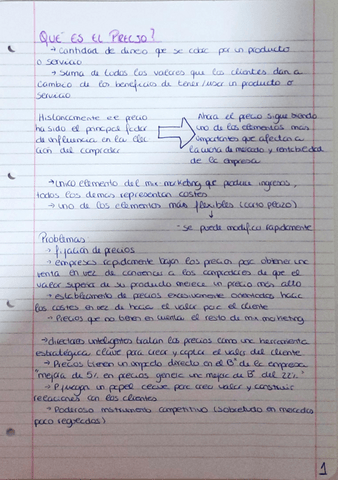 QUÉ ES EL PRECIO?
→ cantidad de dinero que se cobra por un producto
o servicio
→ suma de todos los valores que los clientes dan a
cambio de los beneficios de tener/usar un producto o
servicio
Históricamente el precio
ha sido el principal factor
de influencia en la elec
ción del comprador
Ahora el precio sigue siendo
uno de los elementos más
importantes que afectan a
la cuota de mercado y rentabilidad
de la empresa
→ único elemento del mix marketing que produce ingresos,
todos los demás representan costes
→ uno de los elementos más flexibles (corto plazo)
→ se puede modificar rápidamente
Problemas:
→ fijación de precios
→ empresas rápidamente bajan los precios para obtener una
venta en vez de convencer a los compradores de que el
valor superior de su producto merece un precio más alto
→ establecimiento de precios excesivamente orientados hacia
los costes en vez de hacia el valor para el cliente
→ Precios que no tienen en cuenta el resto de mix marketing
→ directores inteligentes tratan los precios como una herramienta
estratégica clave para crear y captar el valor del cliente
→ Precios tienen un impacto directo en el Bº de la empresa
"mejora de 5% en precios genera una mejora de Bº del 22%"
→ P juegan un papel clave para crear valor y construir
relaciones con los clientes
→ Poderoso instrumento competitivo (sobretodo en mercados
poco regulados)
1